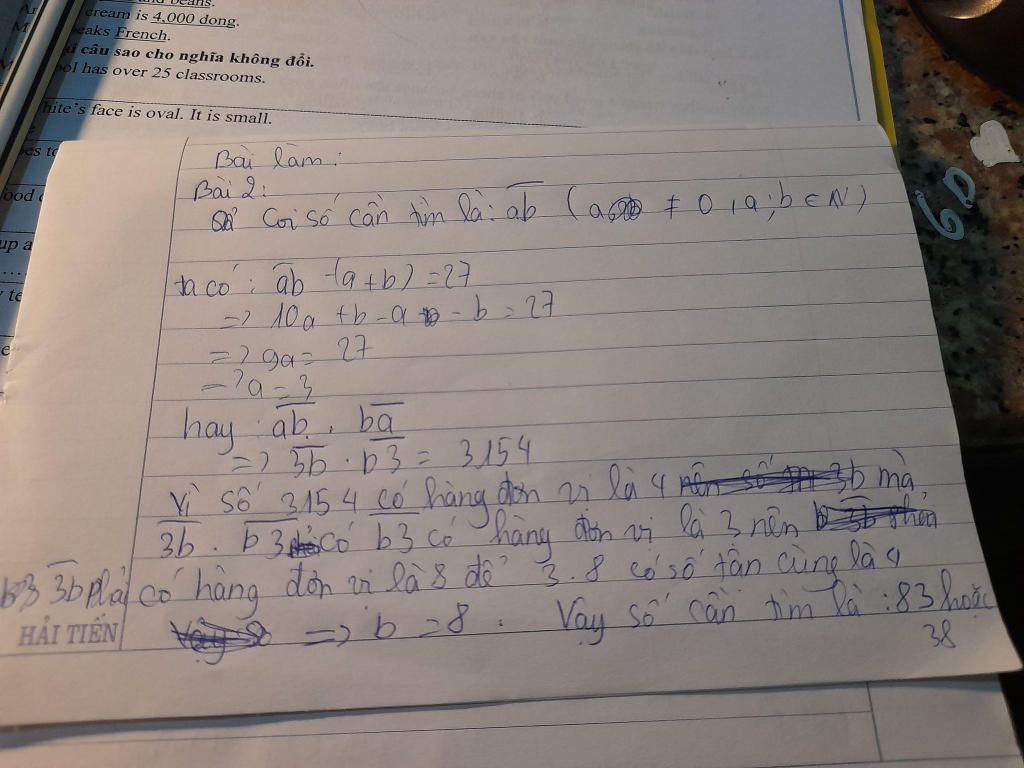 and beans.
cream is 4,000 dong.
eaks French.
i câu sao cho nghĩa không đổi.
ol has over 25 classrooms.
hite's face is oval. It is small.
Bài làm:
Bài 2:
Coi số cần tìm là: ab (a ≠ 0, a; b ∈ N)
ta có: ab - (a + b) = 27
=> 10a + b - a - b = 27
=> 9a = 27
=> a = 3
hay ab . ba
=> 3b . b3 = 3154
Vì số 3154 có hàng đơn vị là 4 mà
3b . b3 có b3 có hàng đơn vị là 3 nên
3b phải có hàng đơn vị là 8 để 3.8 có số tận cùng là 4
HẢI TIẾN
=> b = 8. Vậy số cần tìm là: 83 hoặc
38